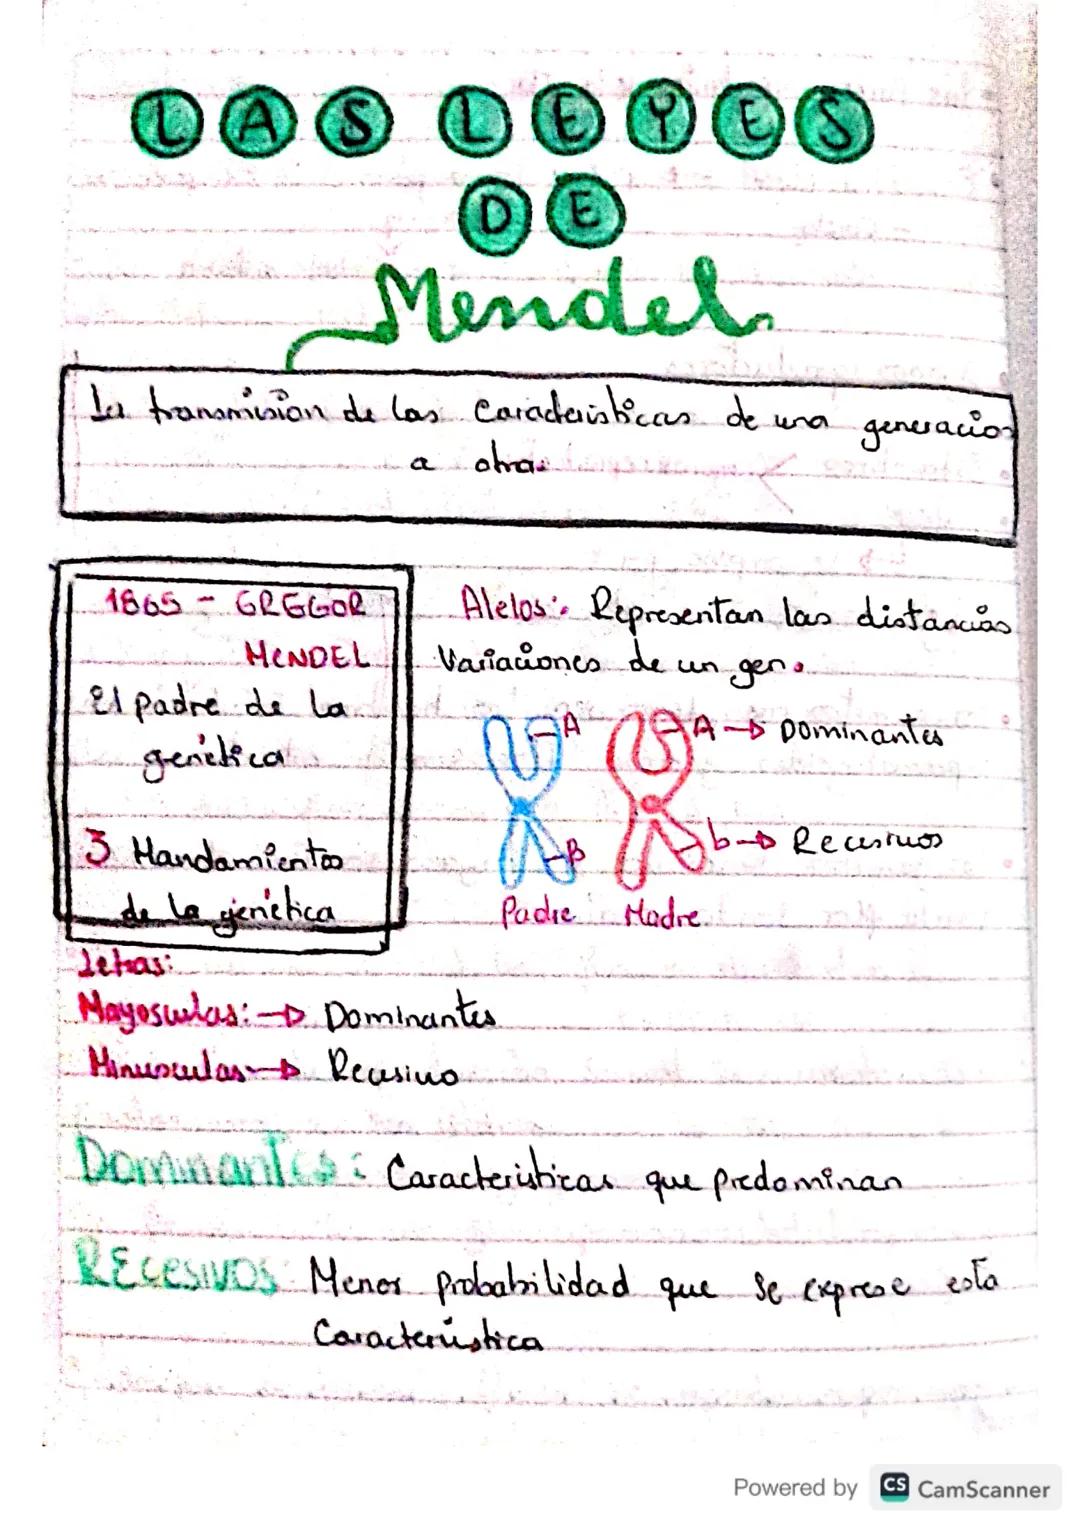 LAS LEYES
DE
Mendel
La transmisión de las Características de una generacion
a otra.
1865 - GREGOR
MENDEL
El padre de la
genética
3 Mandamientos
de la genética
Alelos: Representan las distancias
Variaciones de un gen.
A
A → Dominantes
B
b → Recesivos
Padre Madre
Letras:
Mayosculas: → Dominantes
Minusculas → Recesivo
Dominantes: Caracteristicas que predominan
RECESIVOS: Menor probabilidad que se exprese esta
Característica
Powered by CS CamScanner